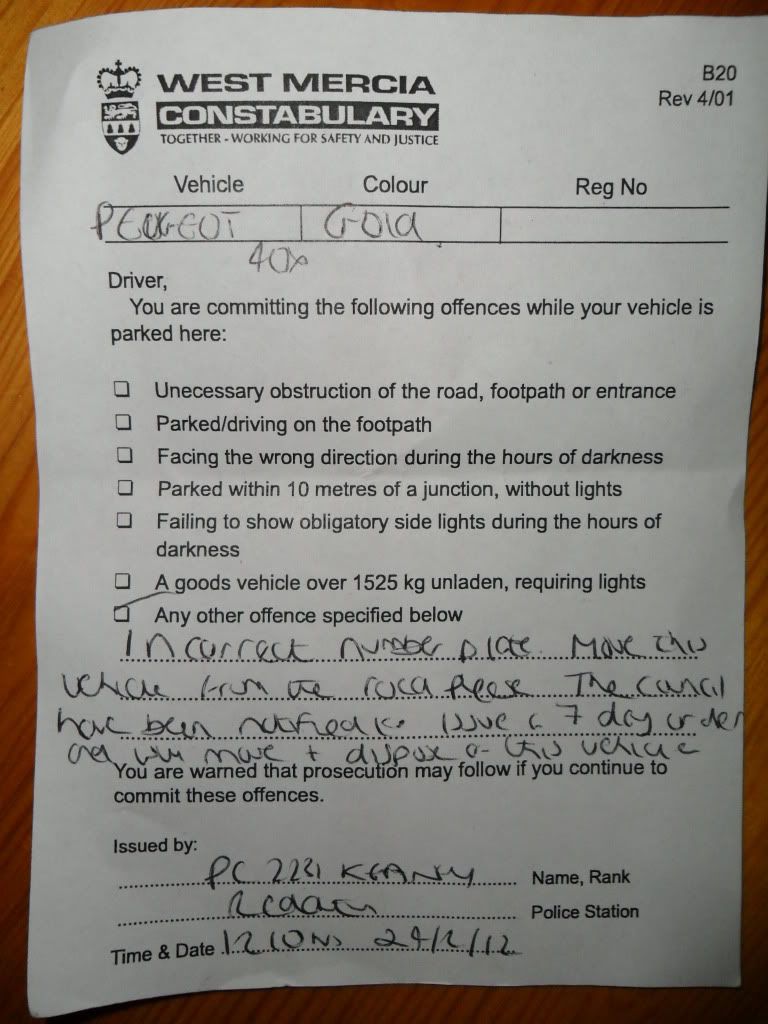 WEST MERCIA
CONSTABULARY
TOGETHER - WORKING FOR SAFETY AND JUSTICE
B20
Rev 4/01
Vehicle Colour Reg No
PEUGEOT Gold
40x
Driver,
You are committing the following offences while your vehicle is
parked here:
Unecessary obstruction of the road, footpath or entrance
Parked/driving on the footpath
Facing the wrong direction during the hours of darkness
Parked within 10 metres of a junction, without lights
Failing to show obligatory side lights during the hours of
darkness
A goods vehicle over 1525 kg unladen, requiring lights
Any other offence specified below
Incorrect number plate. Move this
vehicle from the road please The council
have been notified to issue a 7 day order
and will move + dispose of this vehicle
You are warned that prosecution may follow if you continue to
commit these offences.
Issued by:
PC 2231 KEANEY Name, Rank
Police Station
Time & Date 12 10 24/2/12